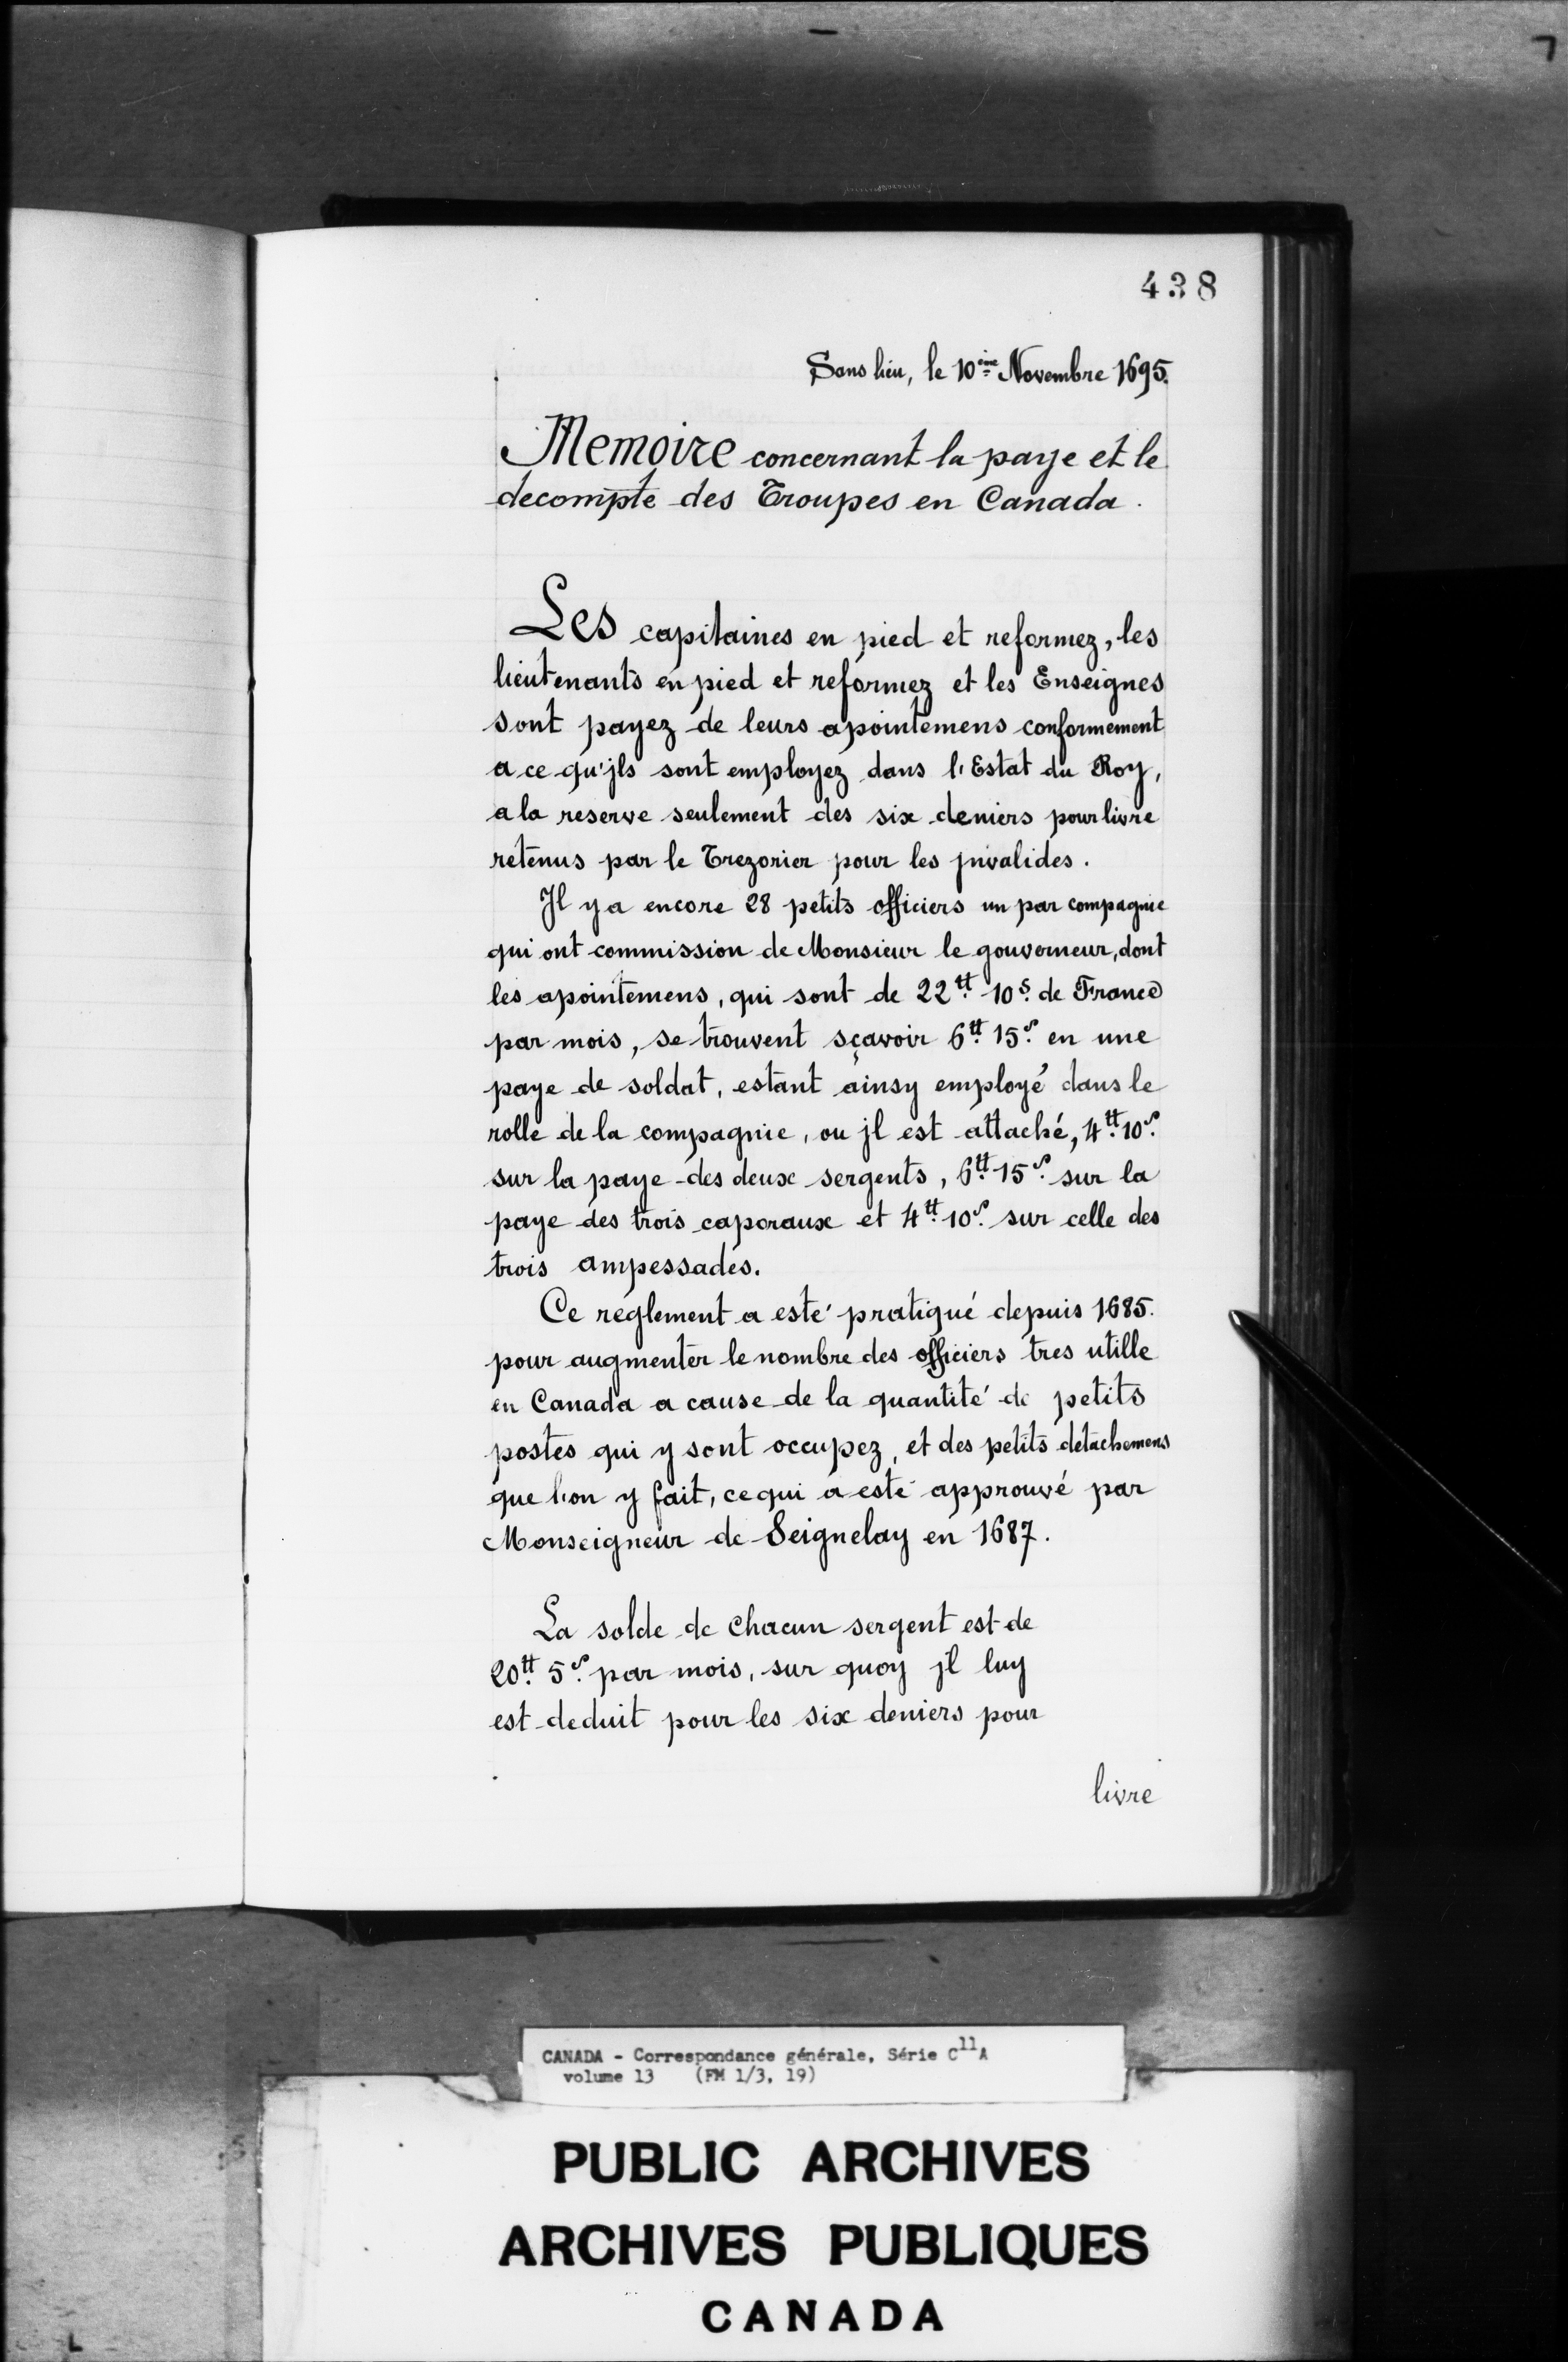 438
Sans lieu, le 10ème Novembre 1695.
Memoire concernant la paye et le
decompte des Troupes en Canada.
Les capitaines en pied et reformez, les
lieutenants en pied et reformez et les Enseignes
sont payez de leurs apointemens conformement
a ce qu'jls sont employez dans l'Estat du Roy,
a la reserve seulement des six deniers pour livre
retenus par le Trezorier pour les jnvalides.
Il y a encore 28 petits officiers un par compagnie
qui ont commission de Monsieur le gouverneur, dont
les apointemens, qui sont de 22tt 10s. de France
par mois, se trouvent sçavoir 6tt 15s. en une
paye de soldat, estant ainsy employé dans le
rolle de la compagnie, ou jl est attaché, 4tt 10s.
sur la paye des deux sergents, 6tt 15s. sur la
paye des trois caporaux et 4tt 10s. sur celle des
trois ampessades.
Ce reglement a esté pratiqué depuis 1685.
pour augmenter le nombre des officiers tres utille
en Canada a cause de la quantité de petits
postes qui y sont occupez, et des petits detachemens
que l'on y fait, ce qui a esté approuvé par
Monseigneur de Seignelay en 1687.
La solde de chacun sergent est de
20tt 5s. par mois, sur quoy jl luy
est deduit pour les six deniers pour
livre
CANADA - Correspondance générale, Série C11A
volume 13 (FM 1/3, 19)
PUBLIC ARCHIVES
ARCHIVES PUBLIQUES
CANADA